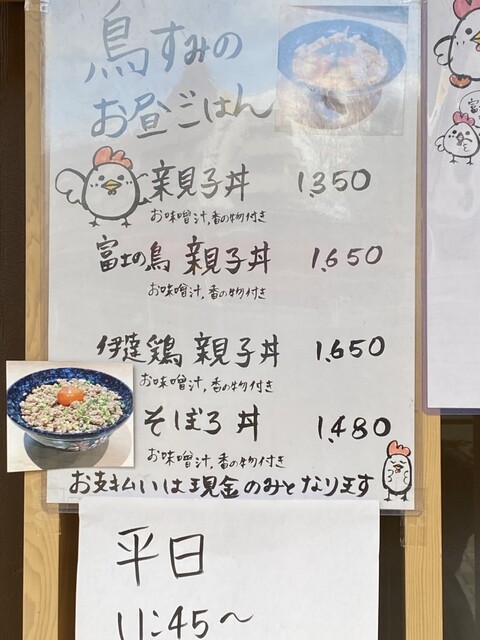 鳥すみの
お昼ごはん
親子丼 1,350
お味噌汁,香の物付き
富士の鳥 親子丼 1,650
お味噌汁,香の物付き
伊達鶏 親子丼 1,650
お味噌汁,香の物付き
そぼろ丼 1,480
お味噌汁,香の物付き
お支払いは現金のみとなります
平日
11:45〜